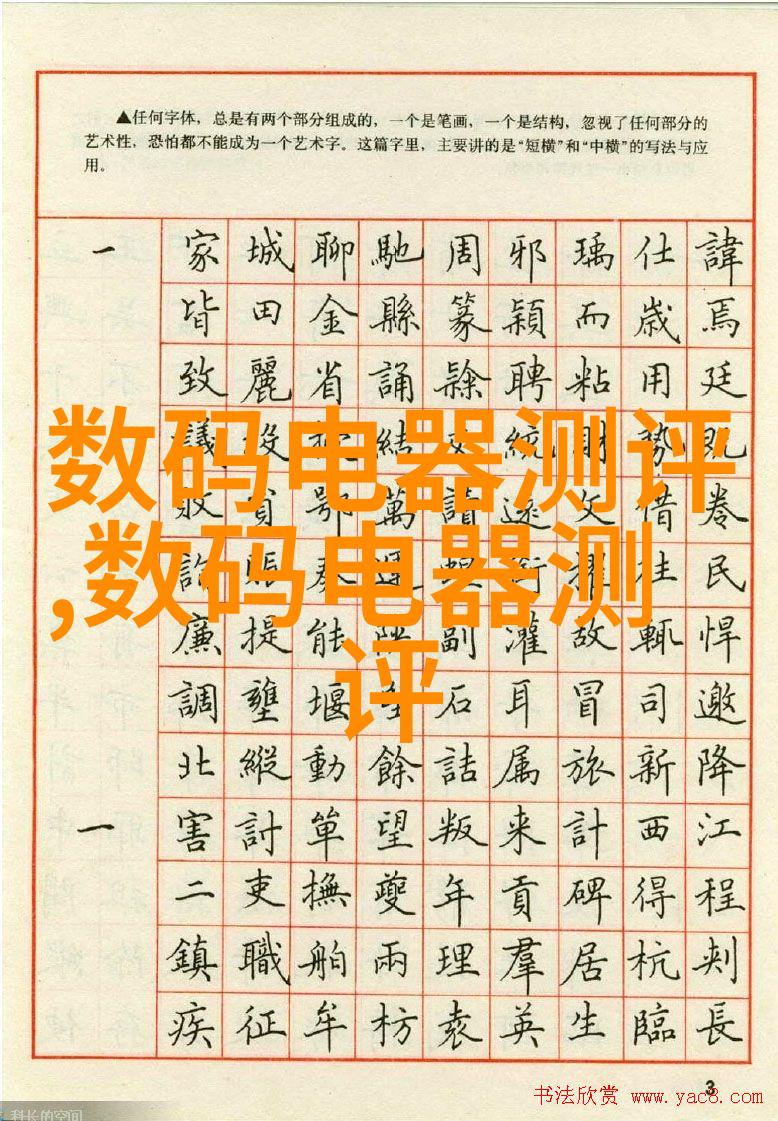 ▲任何字体，总是有两个部分组成的，一个是笔画，一个是结构，忽视了任何部分的
艺术性，恐怕都不能成为一个艺术字。这篇字里，主要讲的是“短横”和“中横”的写法与应
用。
一 家 城 聊 馳 周 邪 瑀 仕 諱
皆 田 金 縣 篆 穎 而 歲 焉
致 麗 省 誦 隸 聘 粘 用 廷
議 設 結 統 財 勢 既
数码电器测评
收 鄂 萬 請 遠 文 借 卷
奏 運 擢 柱 民
,数码电器测
廉 提 能 副 灌 故 輒 悍
评
調 壅 堰 至 石 耳 冒 司 邀
北 縱 動 餘 詰 属 旅 新 降
一 害 討 單 望 叛 来 計 西 江
二 吏 撫 夔 年 貢 碑 得 程
鎮 職 舶 兩 理 羣 居 杭 刺
疾 征 牟 枋 袁 英 生 臨 長
3
书法欣赏 www.yac8.com
科长的空间